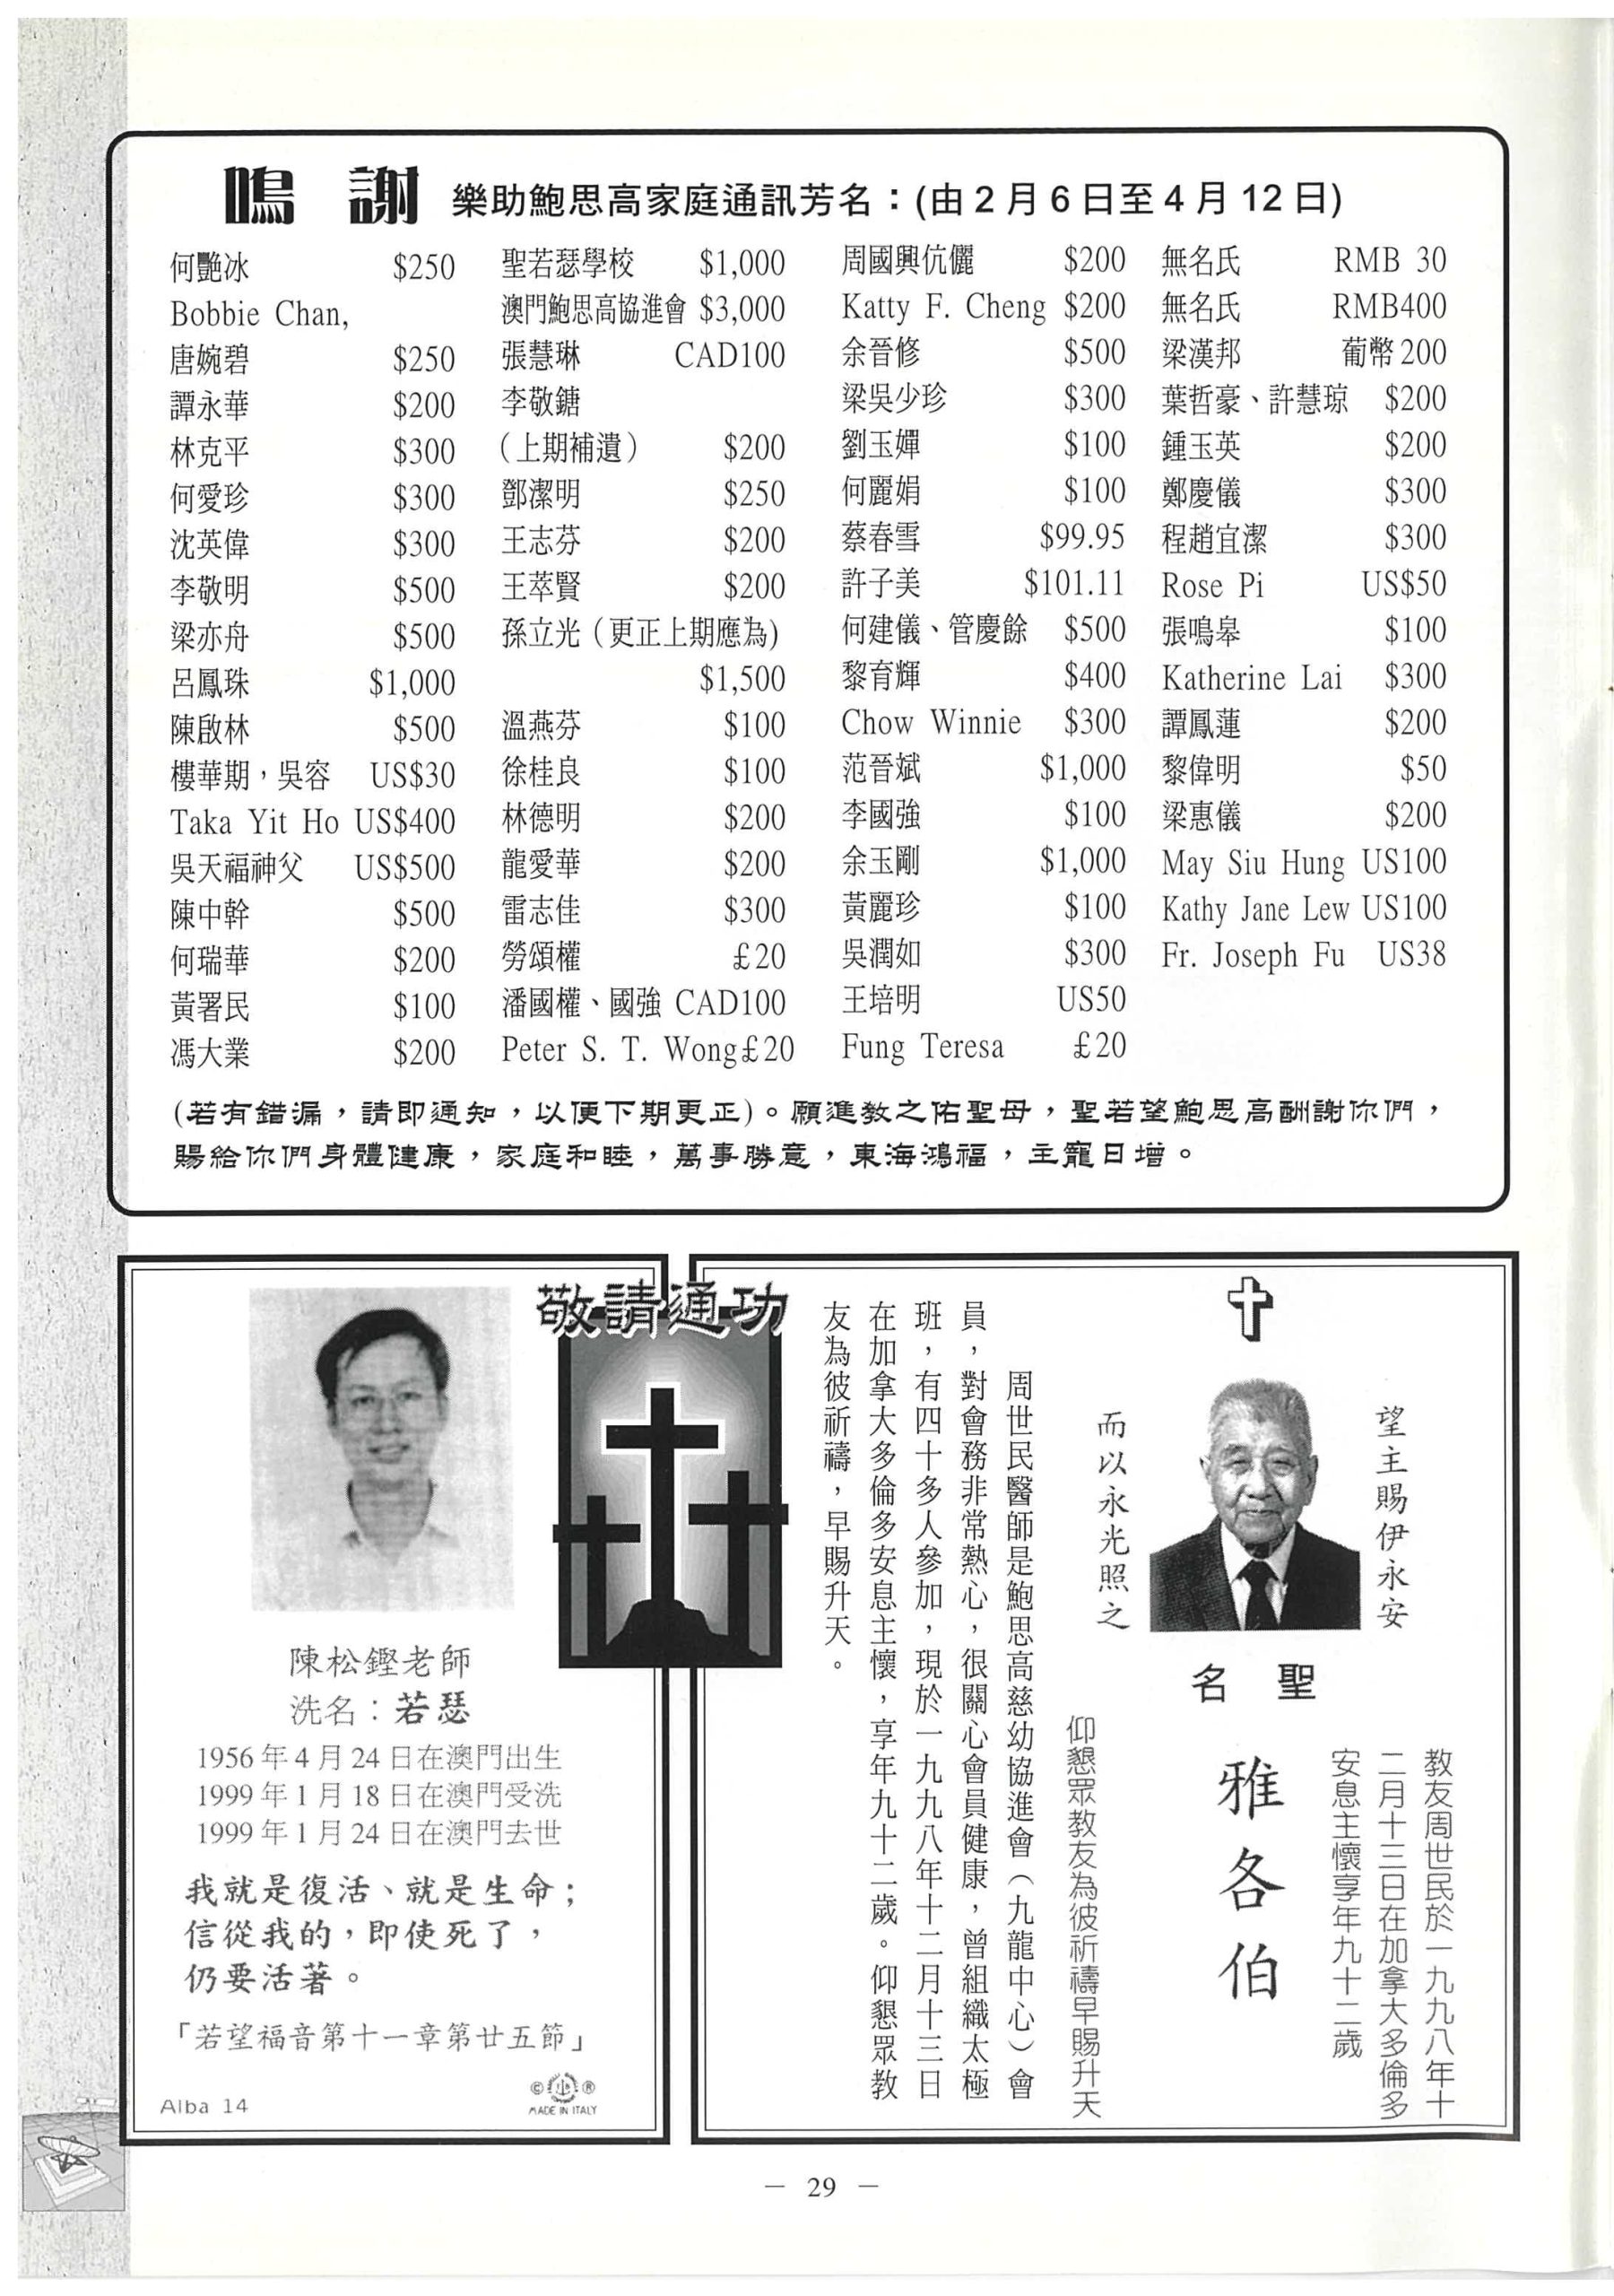 鳴 謝 樂助鮑思高家庭通訊芳名：(由2月6日至4月12日)
何艷冰 $250
Bobbie Chan,
唐婉碧 $250
譚永華 $200
林克平 $300
何愛珍 $300
沈英偉 $300
李敬明 $500
梁亦舟 $500
呂鳳珠 $1,000
陳啟林 $500
樓華期，吳容 US$30
Taka Yit Ho US$400
吳天福神父 US$500
陳中幹 $500
何瑞華 $200
黃署民 $100
馮大業 $200
聖若瑟學校 $1,000
澳門鮑思高協進會 $3,000
張慧琳 CAD100
李敬鏞
（上期補遺） $200
鄧潔明 $250
王志芬 $200
王萃賢 $200
孫立光（更正上期應為)
$1,500
溫燕芬 $100
徐桂良 $100
林德明 $200
龍愛華 $200
雷志佳 $300
勞頌權 £20
潘國權、國強 CAD100
Peter S. T. Wong£20
周國興伉儷 $200
Katty F. Cheng $200
余晉修 $500
梁吳少珍 $300
劉玉嬋 $100
何麗娟 $100
蔡春雪 $99.95
許子美 $101.11
何建儀、管慶餘 $500
黎育輝 $400
Chow Winnie $300
范晉斌 $1,000
李國強 $100
余玉剛 $1,000
黃麗珍 $100
吳潤如 $300
王培明 US50
Fung Teresa £20
無名氏 RMB 30
無名氏 RMB400
梁漢邦 葡幣200
葉哲豪、許慧琼 $200
鍾玉英 $200
鄭慶儀 $300
程趙宜潔 $300
Rose Pi US$50
張鳴皋 $100
Katherine Lai $300
譚鳳蓮 $200
黎偉明 $50
梁惠儀 $200
May Siu Hung US100
Kathy Jane Lew US100
Fr. Joseph Fu US38
(若有錯漏，請即通知，以便下期更正)。願進教之佑聖母，聖若望鮑思高酬謝你們，
賜給你們身體健康，家庭和睦，萬事勝意，東海鴻福，主寵日增。
敬請通功
陳松鏗老師
洗名：若瑟
1956年4月24日在澳門出生
1999年1月18日在澳門受洗
1999年1月24日在澳門去世
我就是復活、就是生命；
信從我的，即使死了，
仍要活著。
「若望福音第十一章第廿五節」
Alba 14
© ®
MADE IN ITALY
望主賜伊永安
而以永光照之
聖名
雅各伯
教友周世民於一九九八年十
二月十三日在加拿大多倫多
安息主懷享年九十二歲
仰懇眾教友為彼祈禱早賜升天
周世民醫師是鮑思高慈幼協進會（九龍中心）會
員，對會務非常熱心，很關心會員健康，曾組織太極
班，有四十多人參加，現於一九九八年十二月十三日
在加拿大多倫多安息主懷，享年九十二歲。仰懇眾教
友為彼祈禱，早賜升天。
— 29 —